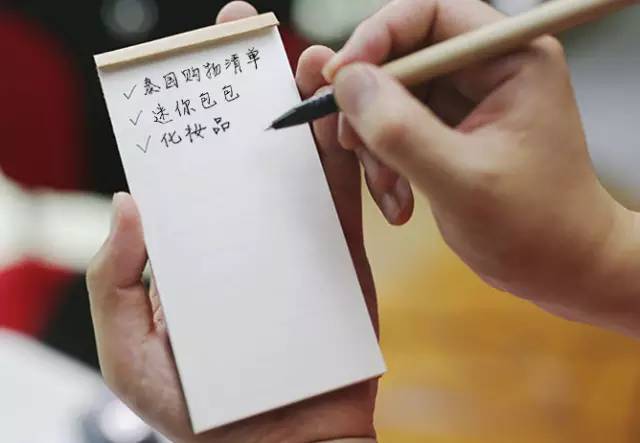 ✓泰国购物清单
✓迷你包包
✓化妆品